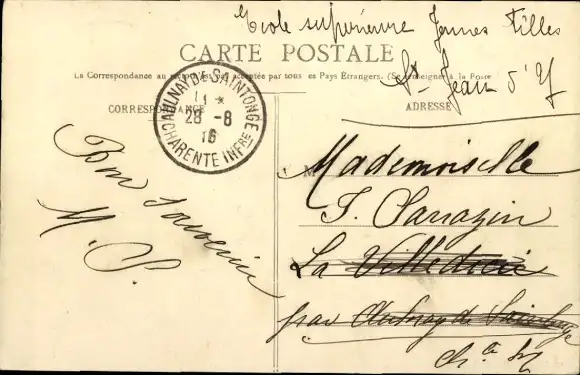 Ecole supérieure Jeunes filles
St Jean d'Y
CARTE POSTALE
La Correspondance au recto n'est pas acceptée par tous les Pays Étrangers. (Se renseigner à la Poste
CORRESPONDANCE
ADRESSE
AULNAY DE SAINTONGE
11 *
28 - 8
16
CHARENTE INFRE
Bon souvenir
M. S.
M
Mademoiselle
J. Sarrazin
La Villedieu
par Aulnay de Saintonge
Ch. te